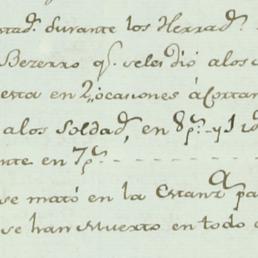 stad.ˢ durante los Herrad.ˢ
Bezerro q.ᵉ seles dió a los
esta en 2,, ocasiones á Cortar
a los Soldad.ˢ en 8 p.ˢ y 1 r
nte en 7 p.ˢ - - - - - - -
se mató en la Estanz.ᵃ pa
se han Muerto en todo